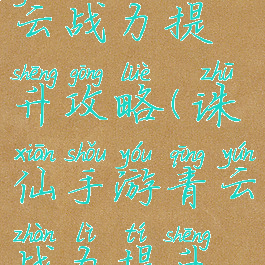 云战力提
shēng gōng lüè zhū
升攻略(诛
xiān shǒu yóu qīng yún
仙手游青云
zhàn lì tí shēng
战力提升